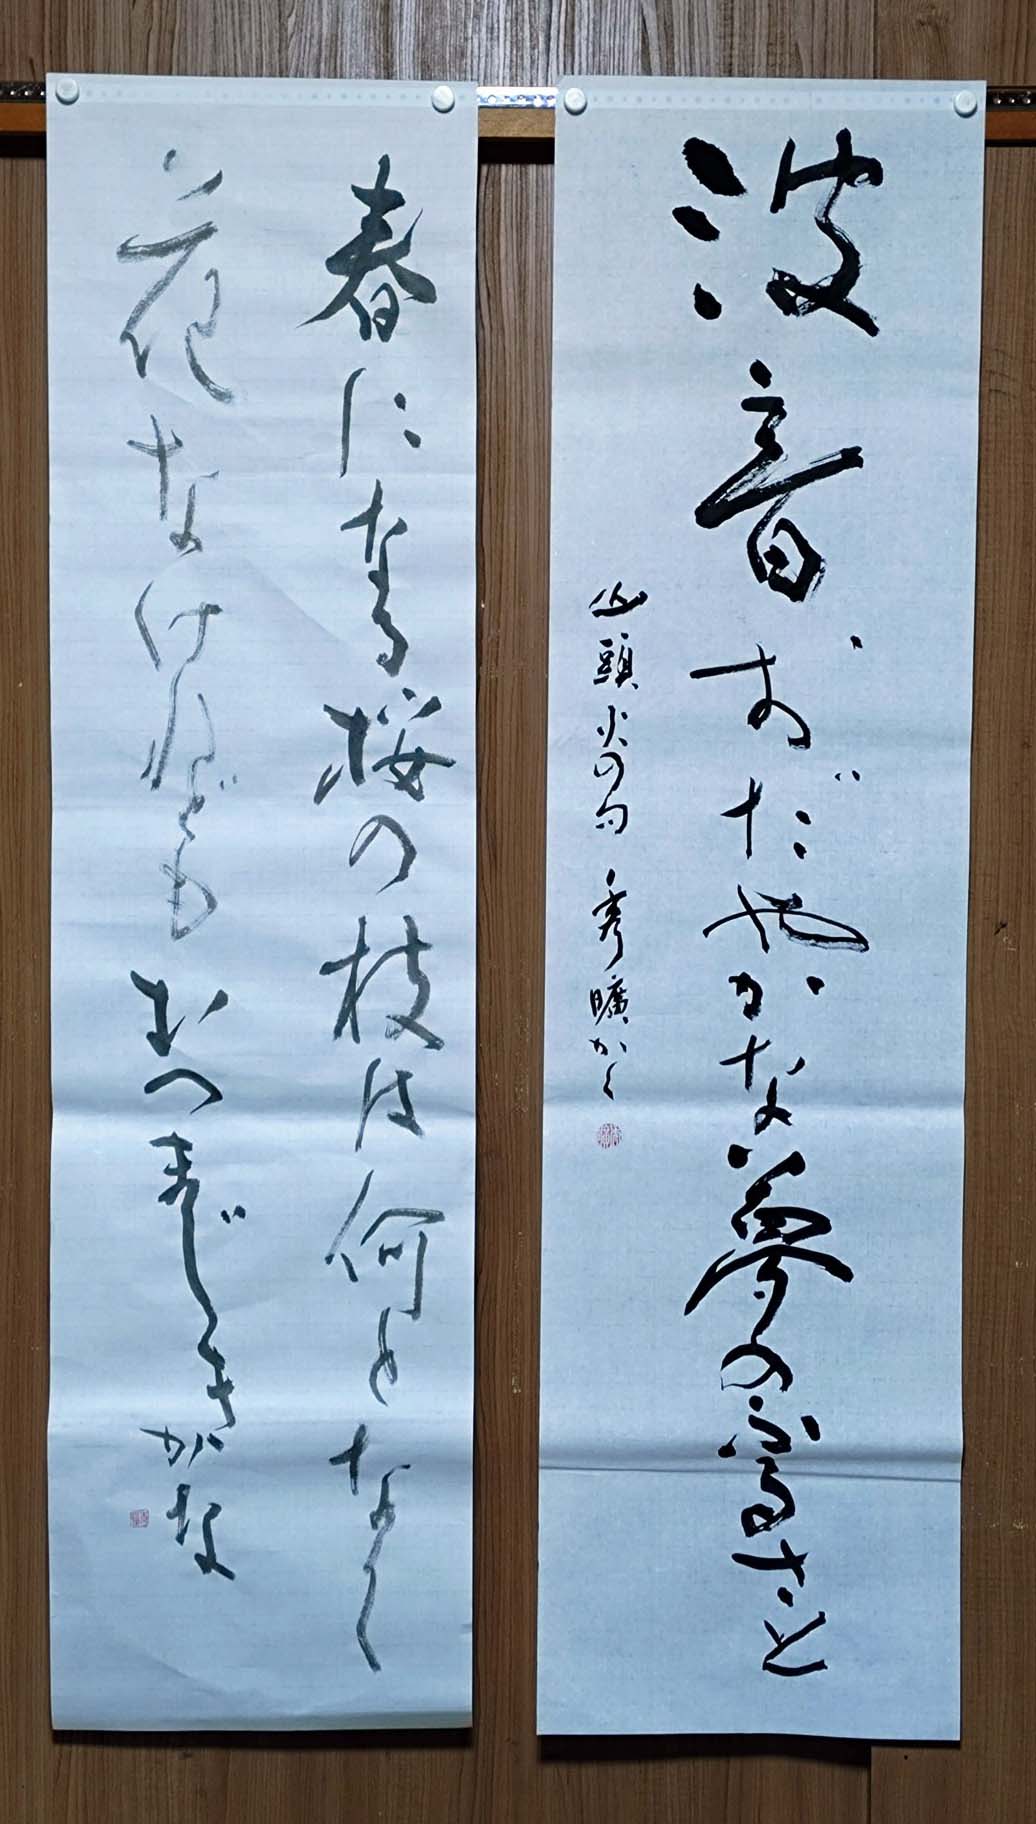 波音おだやかな夢のふるさと
山頭火の句 秀曠かく
春になる桜の枝は何となく
花なけれどもむつまじきかな